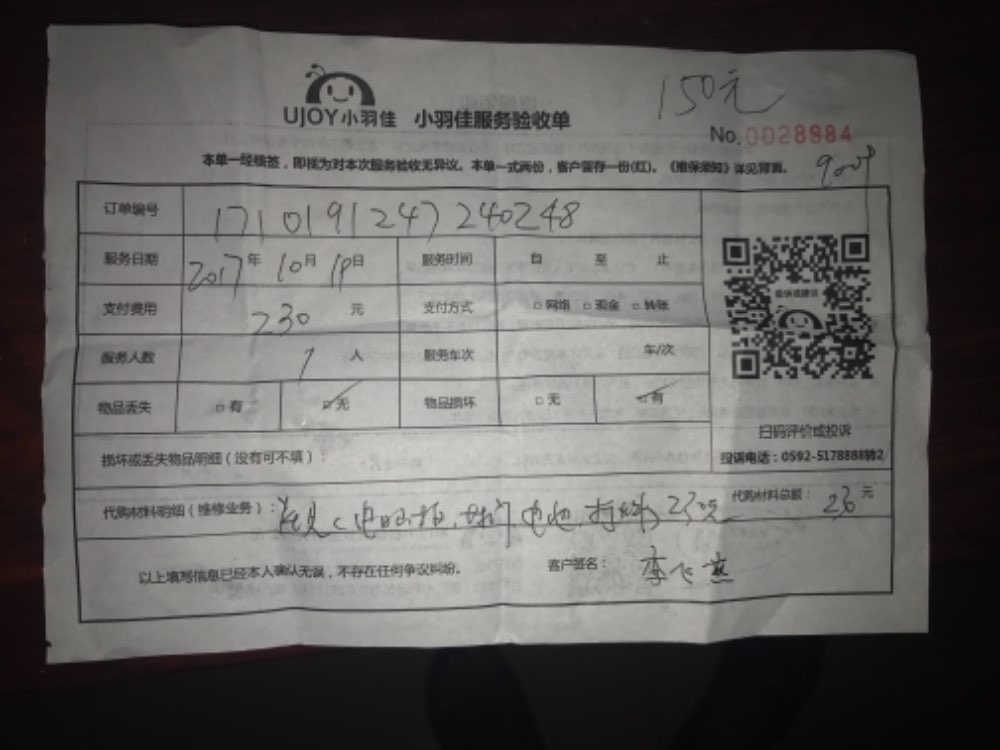 150元
UJOY小羽佳 小羽佳服务验收单
No.0028984
本单一经确签，即视为对本次服务验收无异议。本单一式两份，客户留存一份(红)。《维保须知》详见背面。
订单编号 1710191247240248
服务日期 2017年10月19日 服务时间 自 至 止
支付费用 230元 支付方式 □网络 □现金 □转账
服务人数 1人 服务车次 车/次
物品丢失 □有 ☑无 物品损坏 □无 ☑有
投诉或建议
扫码评价或投诉
投诉电话：0592-5178888转2
损坏或丢失物品明细（没有可不填）：
代购材料明细（维修业务）： 230元 代购材料总额： 230元
以上填写信息已经本人确认无误，不存在任何争议纠纷。 客户签名： 李飞燕